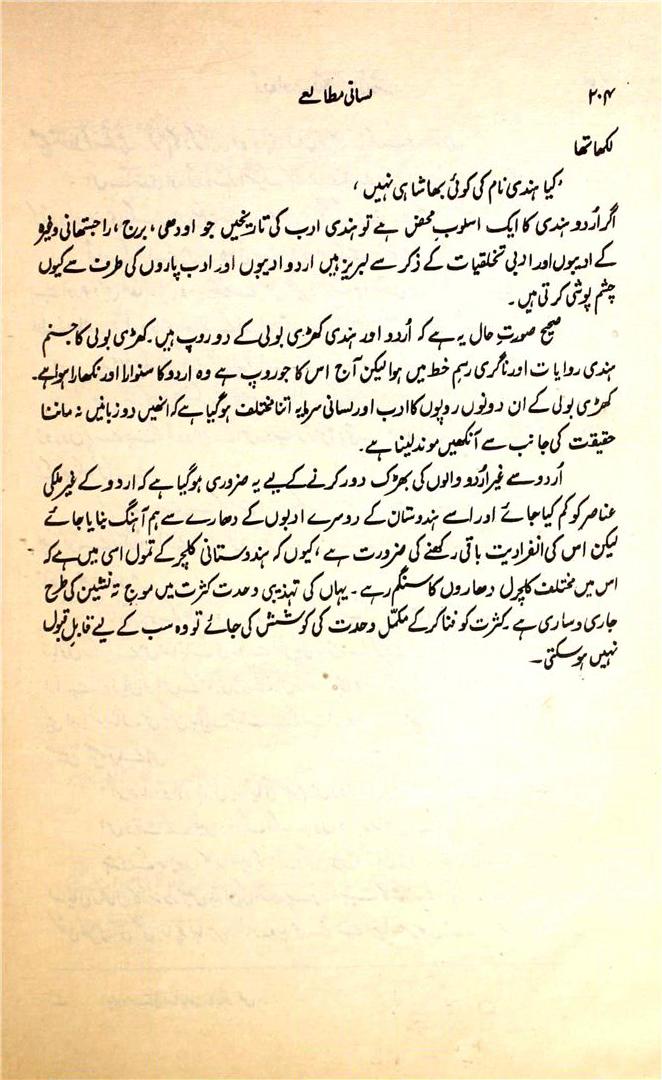 ۲۰۴ لسانی مطالعے
لکھا تھا
'کیا ہندی نام کی کوئی بھاشا ہی نہیں'
اگر اُردو ہندی کا ایک اسلوبِ محض ہے تو ہندی ادب کی تاریخیں جو اودھی، برج، راجستھانی وغیرہ
کے ادیبوں اور ادبی تخلقیات کے ذکر سے لبریز ہیں اردو ادیبوں اور ادب پاروں کی طرف سے کیوں
چشم پوشی کرتی ہیں۔
صحیح صورتِ حال یہ ہے کہ اُردو اور ہندی کھڑی بولی کے دو روپ ہیں۔ کھڑی بولی کا جنم
ہندی روایات اور ناگری رسمِ خط میں ہوا لیکن آج اس کا جو روپ ہے وہ اردو کا سنوارا اور نکھارا ہوا ہے۔
کھڑی بولی کے ان دونوں روپوں کا ادب اور لسانی سرمایہ اتنا مختلف ہو گیا ہے کہ انھیں دو زبانیں نہ ماننا
حقیقت کی جانب سے آنکھیں موند لینا ہے۔
اُردو سے غیر اُردو والوں کی بھڑک دور کرنے کے لیے یہ ضروری ہو گیا ہے کہ اردو کے غیر ملکی
عناصر کو کم کیا جائے اور اسے ہندوستان کے دوسرے ادبوں کے دھارے سے ہم آہنگ بنایا جائے
لیکن اس کی انفرادیت باقی رکھنے کی ضرورت ہے، کیوں کہ ہندوستانی کلچر کے تمول اسی میں ہے کہ
اس میں مختلف کلچرل دھاروں کا سنگم رہے۔ یہاں کی تہذیبی وحدت کثرت میں موجِ تہ نشین کی طرح
جاری و ساری ہے۔ کثرت کو فنا کر کے مکمّل وحدت کی کوشش کی جائے تو وہ سب کے لیے قابلِ قبول
نہیں ہو سکتی۔